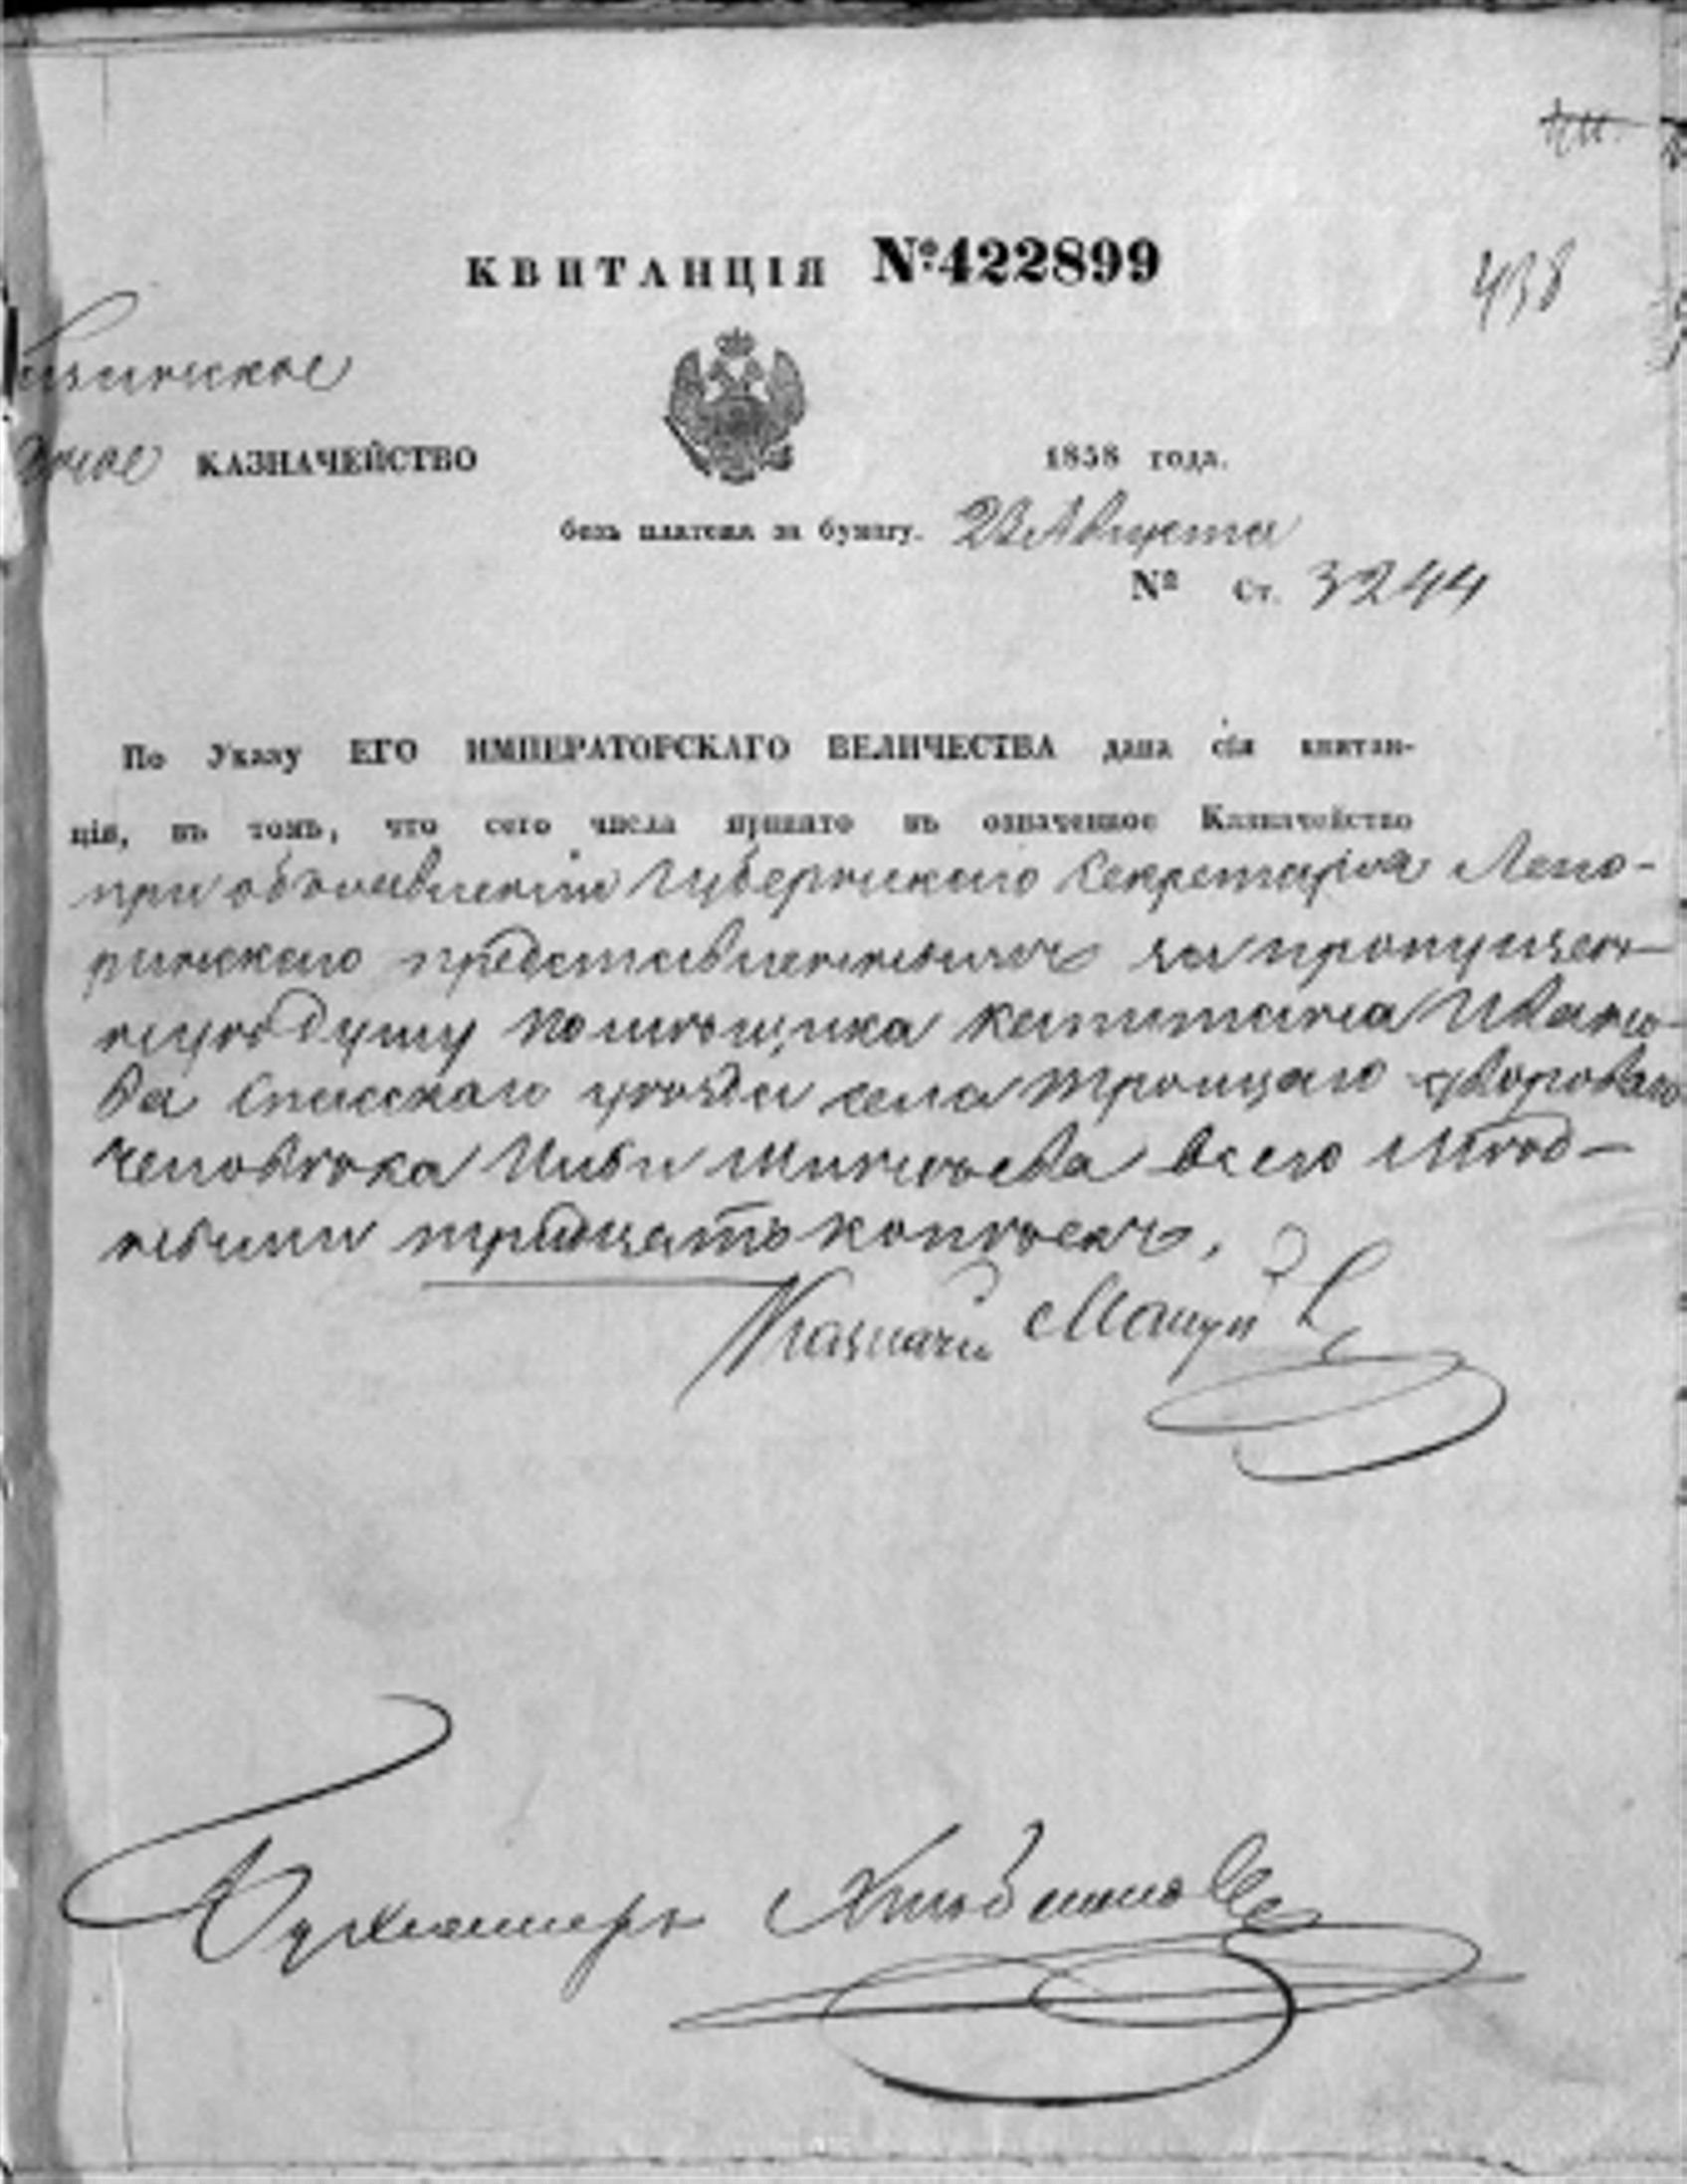 КВИТАНЦІЯ №422899
438
КАЗНАЧЕЙСТВО
1858 года.
безъ платежа за бумагу. Августа
№ Ст. 3244
По Указу ЕГО ИМПЕРАТОРСКАГО ВЕЛИЧЕСТВА дана сія квитан-
ція, въ томъ, что сего числа принято въ означенное Казначейство
при объявленіи Губернскаго Секретаря Лепо-
ринскаго представленныхъ за пропущен-
ную душу помѣщика капитана Ивано-
ва Спасскаго уѣзда села Троицкаго дворового
человѣка Ильи всего мѣд-
ными тридцать копѣекъ.
Казначей
Бухгалтеръ